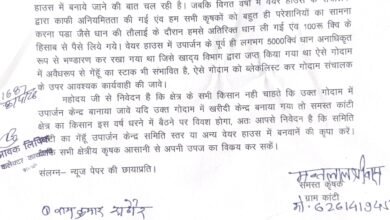 हाउस में बनाये जाने की बात चल रही है। जबकि विगत वर्षो में वेयर हाउस के उपार्जन
द्वारा काफी अनियमितता की गई एंव हम सभी कृषकों को बहुत ही परेशानियों का सामना
करना पडा जैसे धान की तौलाई के दौरान हमसे अतिरिक्त धान ली गई एंव 100रू क्विं के
हिसाब से पैसे लिये गये। वेयर हाउस में उपार्जन के पूर्व ही लगभग 5000क्विं धान अनाधिकृत
रूप से भण्डारण कर रखा गया था जिसे खाद्य विभाग द्वारा जप्त किया गया था ऐसे गोदाम
में अवैधरूप से गेंहू का स्टाक भी संभावित है, ऐसे गोदाम को ब्लेकलिस्ट कर गोदाम संचालक
के उपर आवश्यक कार्यवाही की जावे।
महोदय जी से निवेदन है कि क्षेत्र के सभी किसान नही चाहते कि उक्त गोदाम में
उपार्जन केंद्र बनाया जावे यदि उक्त गोदाम में खरीदी केन्द्र बनाया गया तो समस्त कांटी
क्षेत्र का किसान इस वर्ष धरने में बैठने पर विवश होगा, अतः आपसे निवेदन है कि समिति
कांटी का गेहूँ उपार्जन केन्द्र समिति स्तर या अन्य वेयर हाउस में बनवानें की कृपा करे।
सभी क्षेत्रीय कृषक आसानी से अपनी उपज का विक्रय कर सकें।
संलग्न– न्यूज पेपर की छायाप्रति
समस्त कृषक
ग्राम कांटी
मो. 626141945